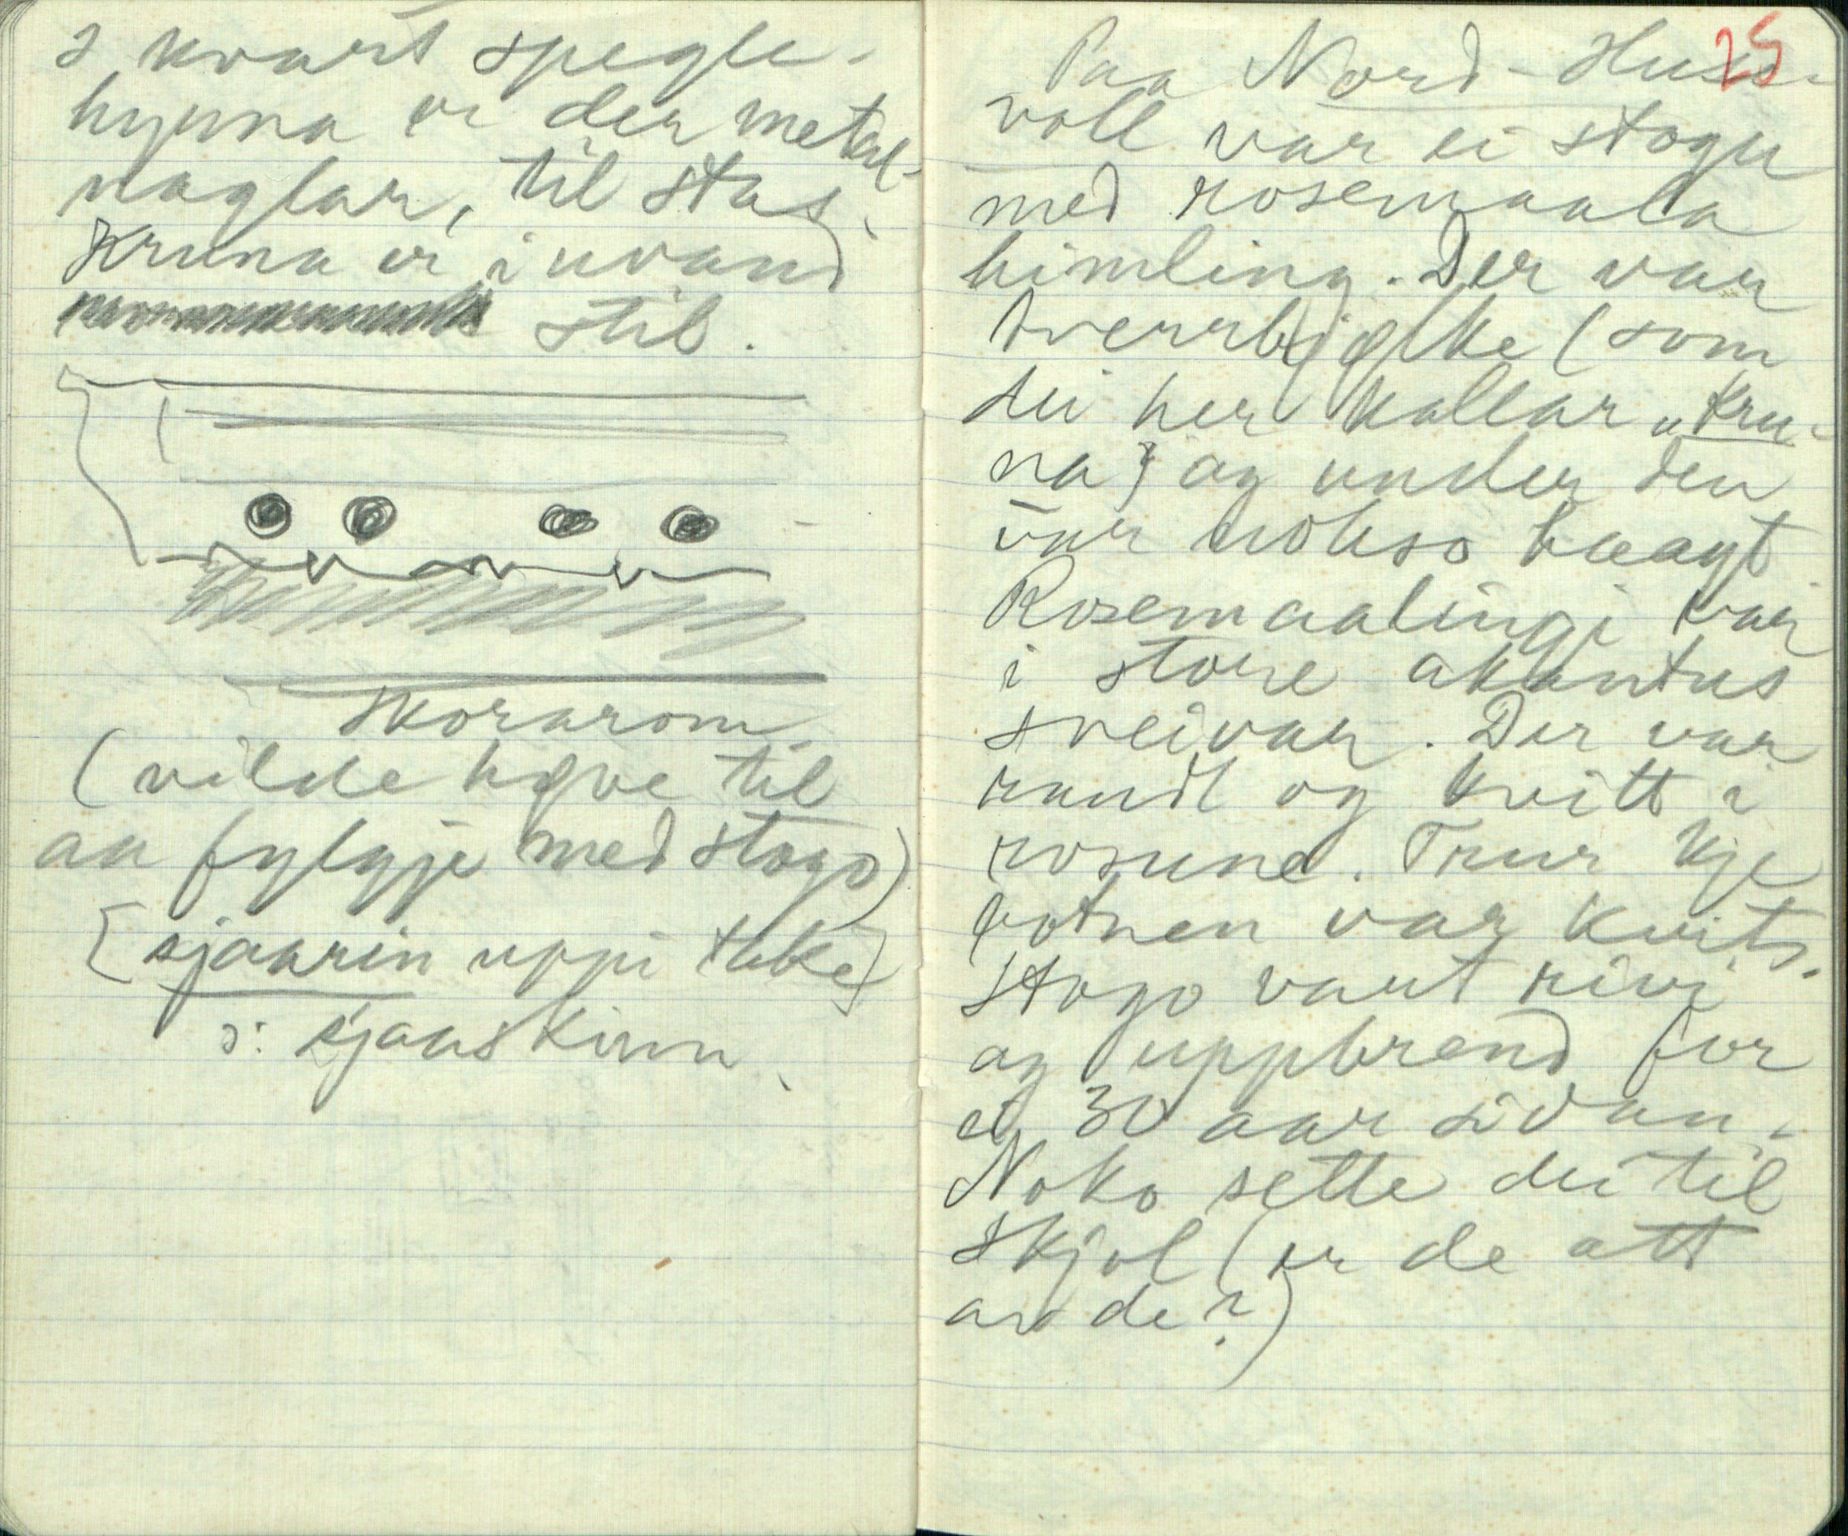 I kvart spegle-
hyrna er der metal-
naglar, til stas.
Kruna er i uvand
stil.
skorarom
(vilde høve til
aa fylgje med stogo)
[sjaarin uppi take]
ɔ: sjaaskinn.
25
Paa Nord-Huse-
voll var ei stogu
med rosemaala
himling. Der var
tverrbjølke (som
dei her kallar "kru-
na") og under den
var nokso laagt.
Rosemaalingi var
i store akantus
sveivar. Der var
raudt og kvitt i
rosune. Trur kje
botnen var kvit.
Stogo vart rivi
og uppbrend for
ei 30 aar sidan.
Noko sette dei til
skjol (er de att
av de?)